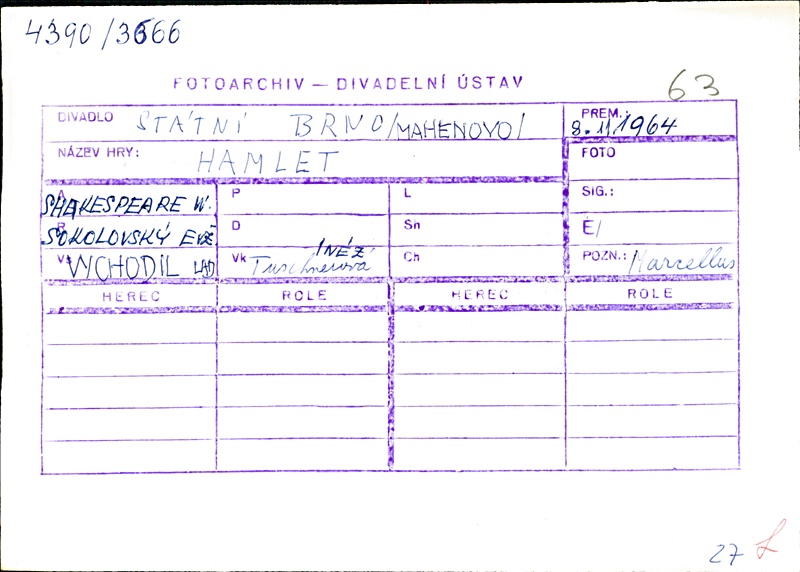 4390/3666
FOTOARCHIV — DIVADELNÍ ÚSTAV
63
DIVADLO STÁTNÍ BRNO/MAHENOVO/
PREM.: 8.11.1964
NÁZEV HRY: HAMLET
FOTO
A SHAKESPEARE W.
P
L
SIG.:
R SOKOLOVSKÝ EVŽ
D
Sn
É/
V VYCHODIL LAD
Vk Tuschnerová INÉZ
Ch
POZN.: Marcellus
HEREC ROLE HEREC ROLE
27